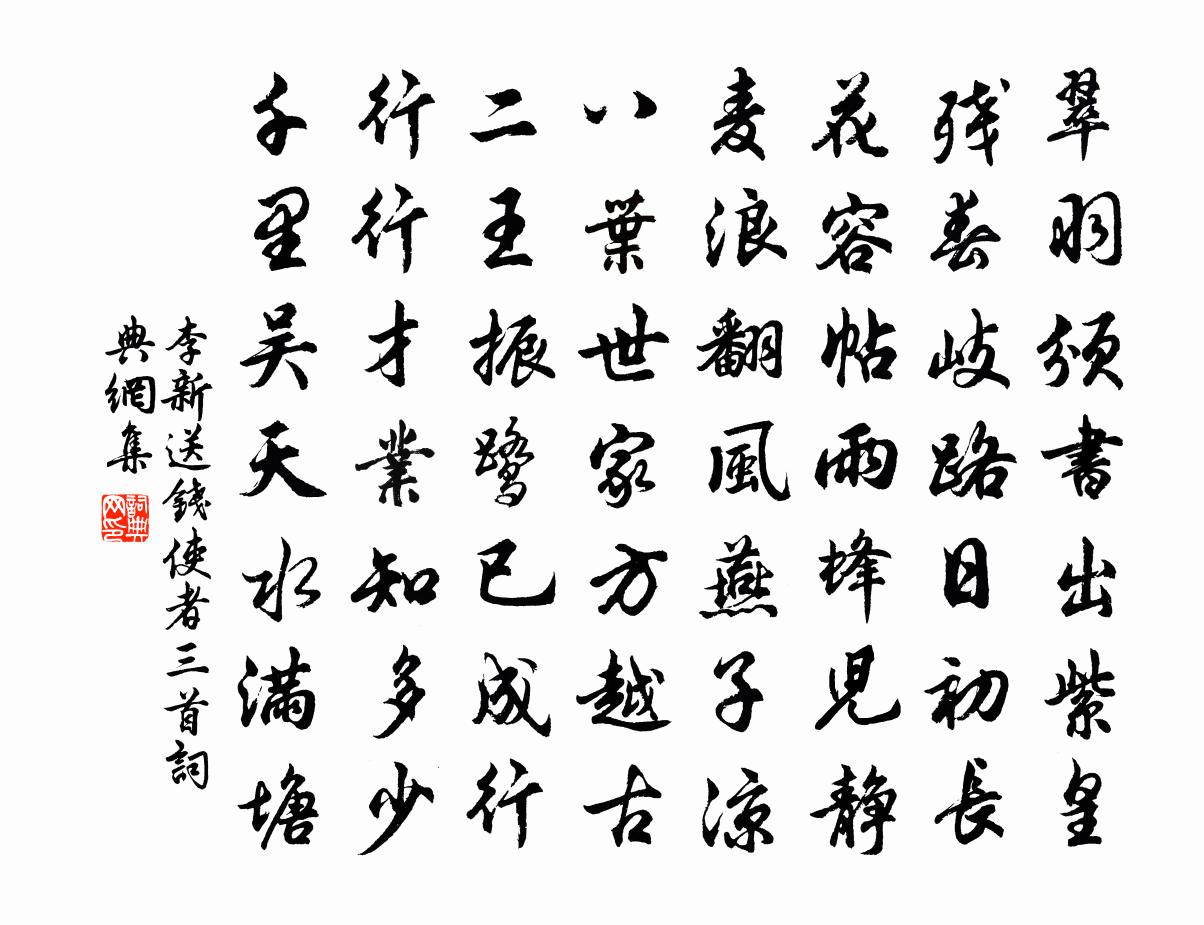 翠羽頒書出紫皇
残春岐路日初長
花容帖雨蜂児静
麦浪翻風燕子凉
八葉世家方越古
二王振鷺已成行
行行才業知多少
千里吴天水满塘
李新送錢使者三首詞
典網集
詞典
网印